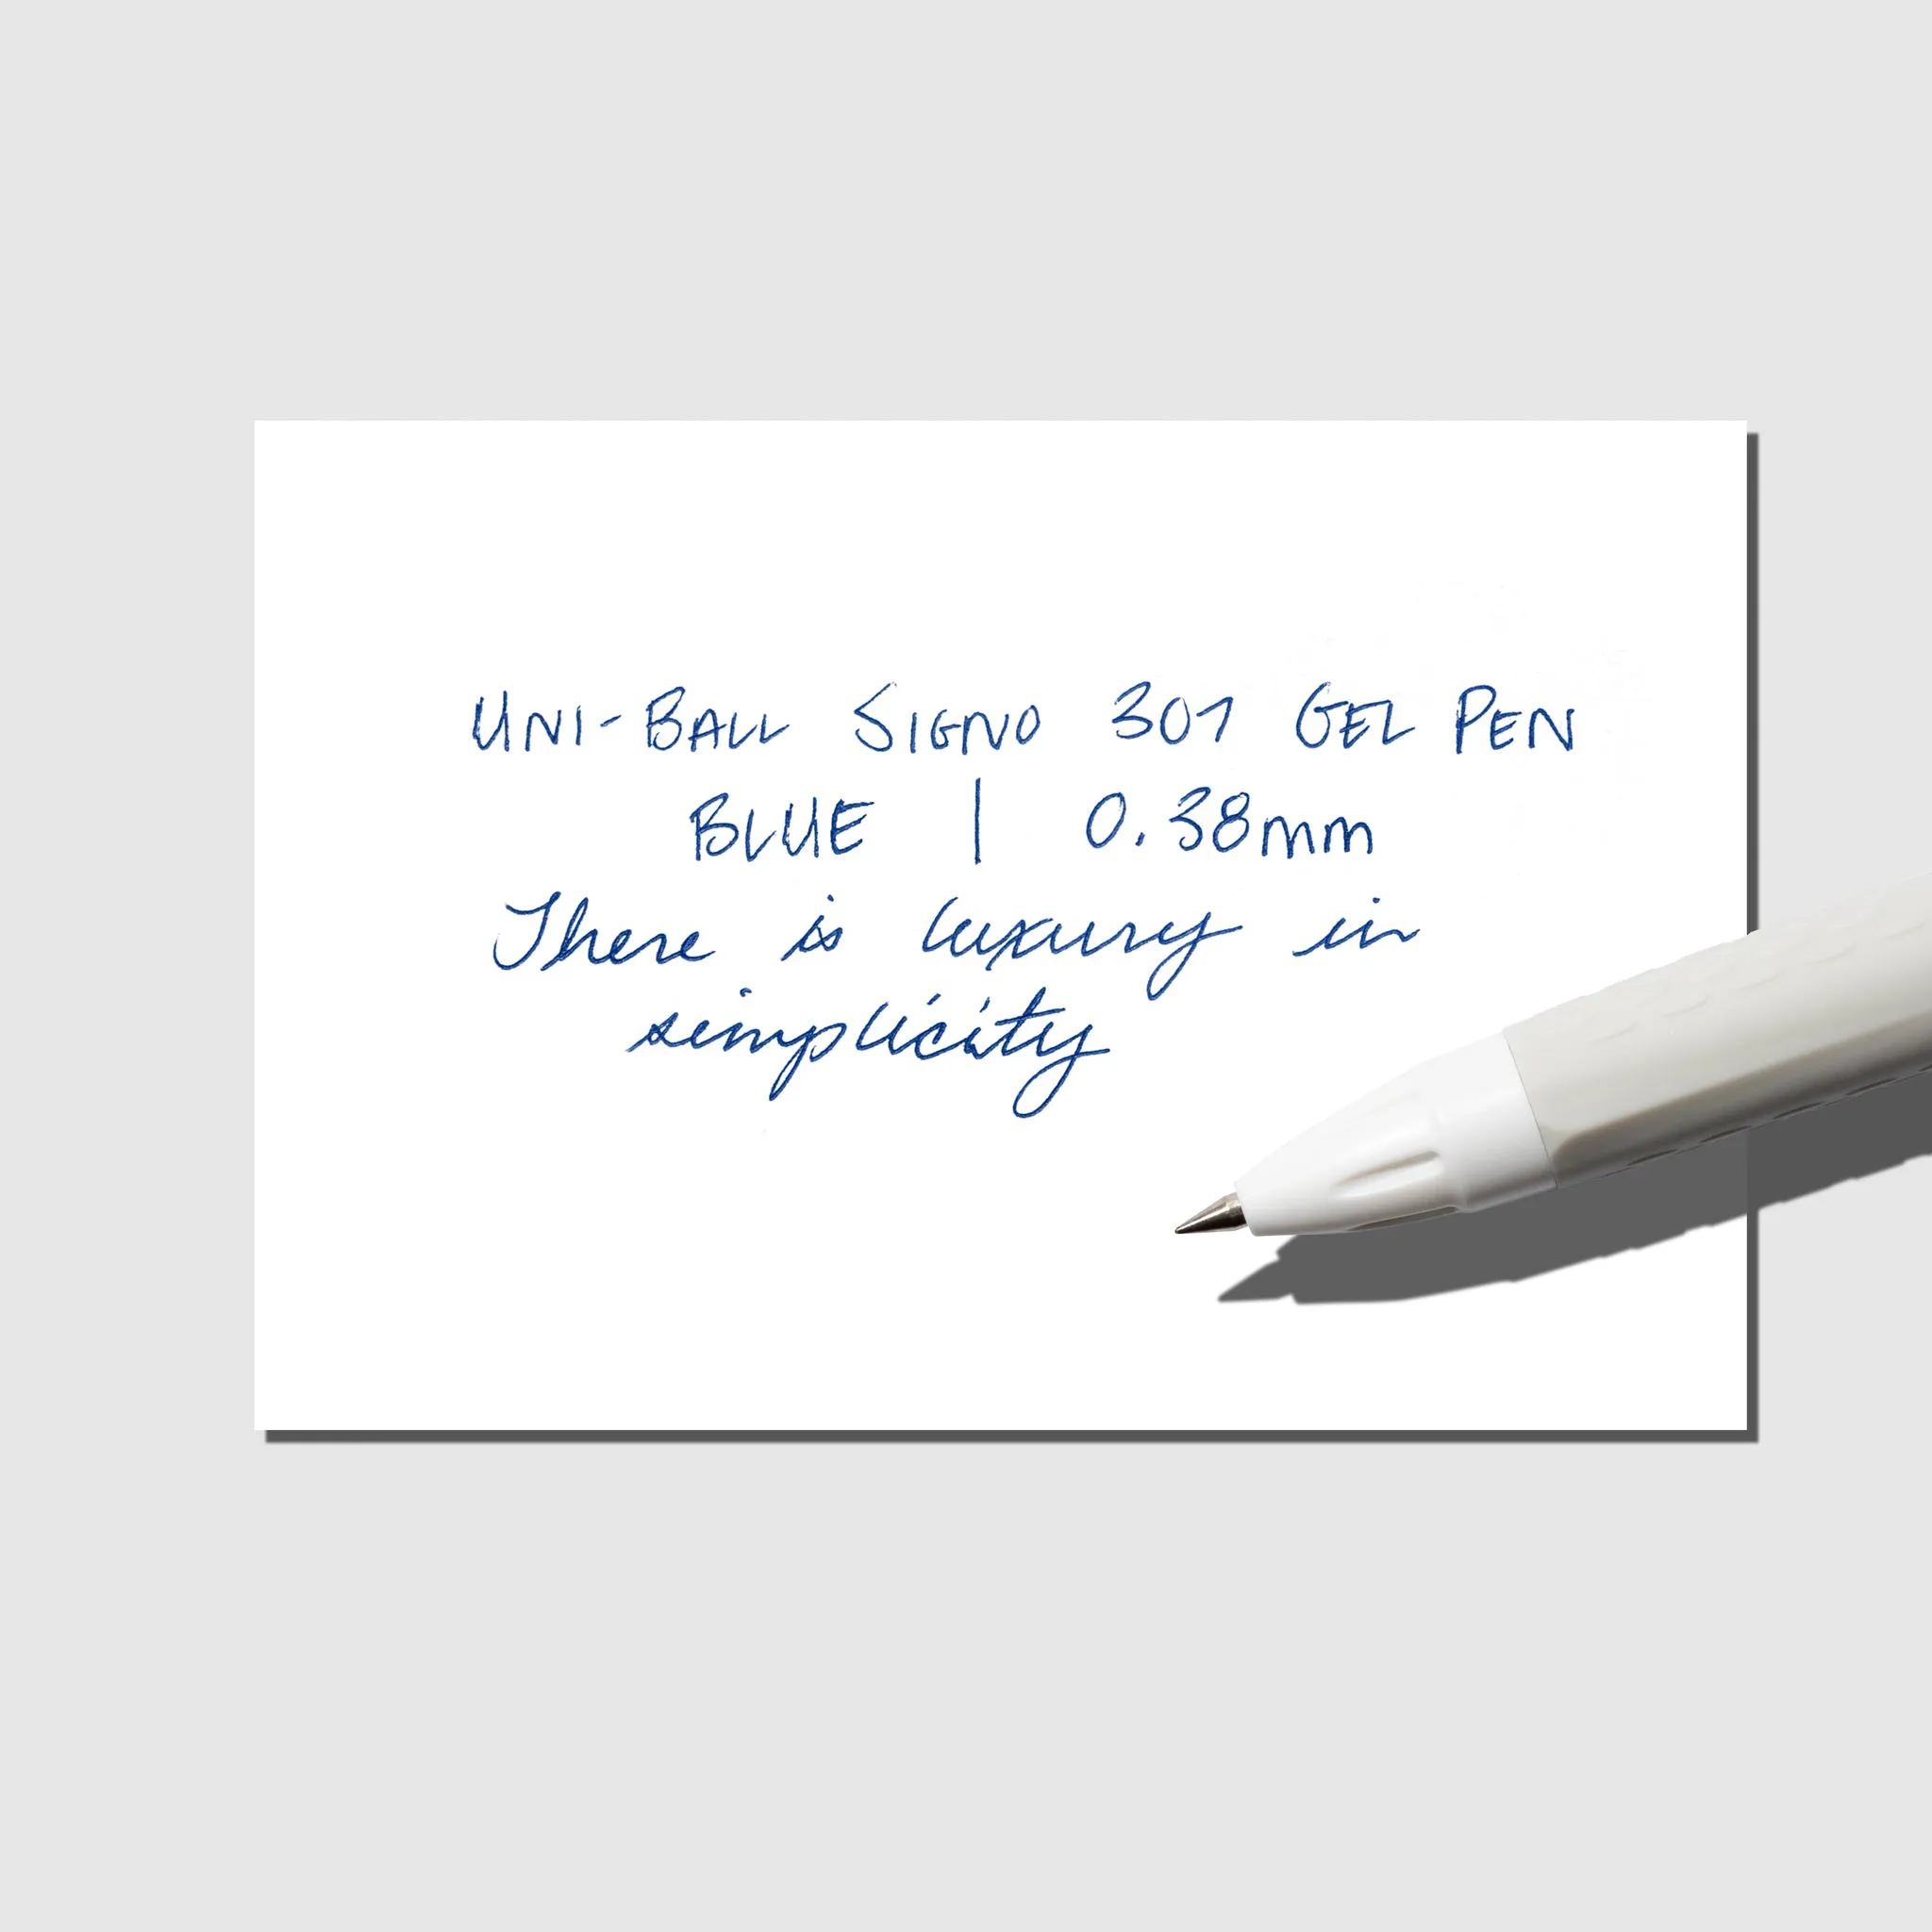 UNI-BALL SIGNO 307 GEL PEN
BLUE | 0.38mm
There is luxury in
simplicity